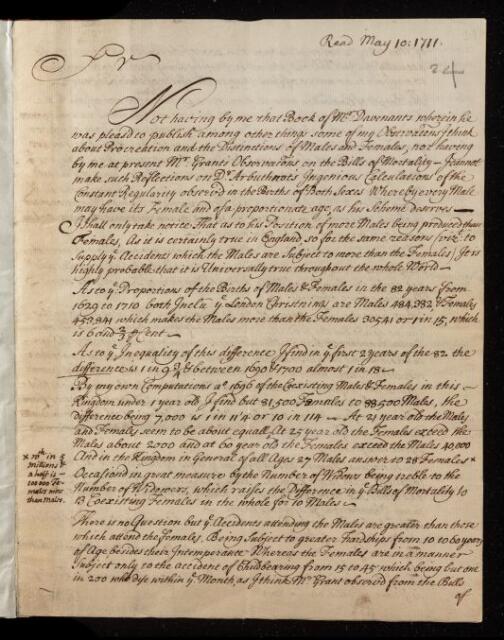 Read May 10: 1711.
24
Sr
Not having by me that Book of Mr Davenants wherein he
was pleasd to publish among other things some of my Observations I think
about Procreation and the Distinctions of Males and Females, nor having
by me at present Mr Grants Observations on the Bills of Mortality – I cannot
make such Reflections on Dr Arbuthnots Ingenious Calculations of the
Constant Regularity observd in the Births of Both Sexes Whereby every Male
may have its Female and of a proportionate age, as his Scheme deserves —
I shall only take notice That as to his Position of more Males being produced than
Females, As it is certainly true in England so for the same reasons (viz. to
Supply ye Accidents which the Males are Subject to more than the Females) It is
highly probable that it is Universally true throughout the whole World —
As to ye Proportions of the Births of Males & Females in the 82 years from
1629 to 1710 both Inclu. ye London Christnings are Males 484,382 & Females
453,841 which makes the Males more than the Females 30541 or 1 in 15, which
is 6 and 2/3 p Cent –
As to ye Inequality of this difference I find in ye first 2 years of the 82 the
difference is 1 in 9 3/4 & between 1690 & 1700 almost 1 in 18 –
By my own Computations ao 1696 of the Coexisting Males & Females in this
Kingdom under 1 year old I find but 81,500 Females to 88,500 Males, the
difference being 7,000 is 1 in 11 4 or 10 in 114 – At 21 year old the Males
and Females seem to be about equall At 25 year old the Females exceed the
Males about 2000 and at 60 year old the Females exceed the Males 40,000
And in the Kingdom in General of all Ages 27 Males answer to 28 Females ×
Occasiond in great measure by the Number of Widows being treble to the
Number of Widowers, which raises the Difference in ye Bills of Mortality to
13 Coexisting Females in the whole for 10 Males –
× wch in 5
Millions &
a half is –
100 000 Fe-
males more
than Males.
There is no Question but ye Accidents attending the Males are greater than those
which attend the Females, Being Subject to greater hardships from 10 to 60 years
of Age besides their Intemperance Whereas the Females are in a manner
Subject only to the accident of Childbearing from 15 to 45 which being but one
in 200 who dye within ye Month, as I think Mr Grant observd from the Bills
of